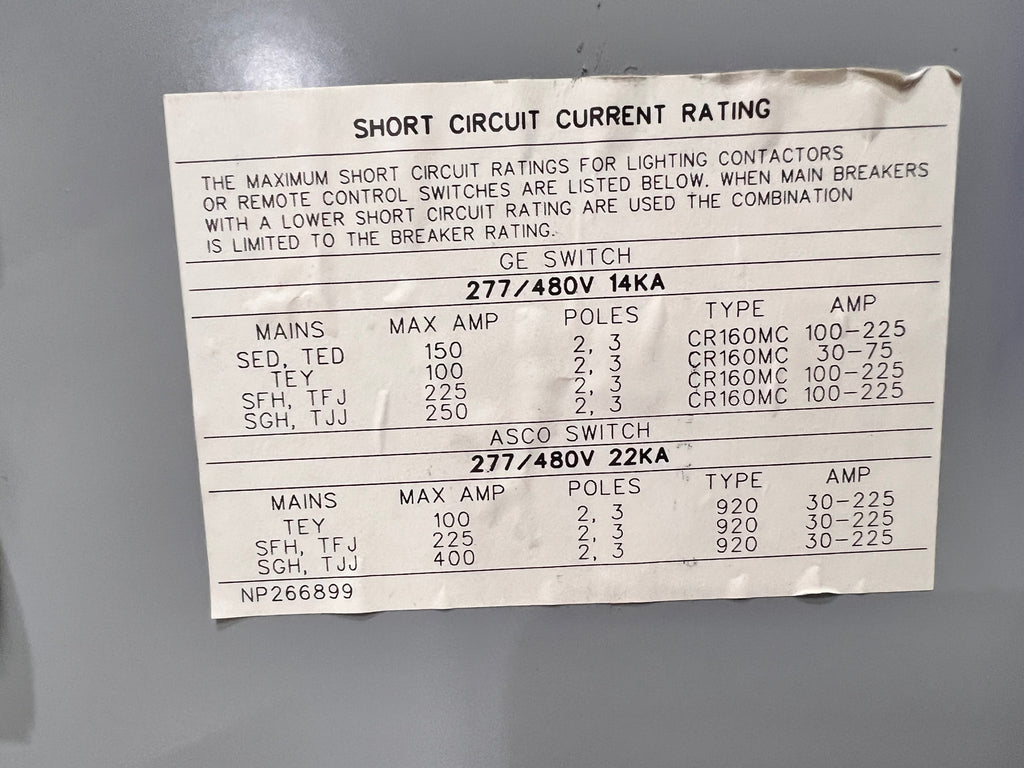 SHORT CIRCUIT CURRENT RATING
THE MAXIMUM SHORT CIRCUIT RATINGS FOR LIGHTING CONTACTORS
OR REMOTE CONTROL SWITCHES ARE LISTED BELOW. WHEN MAIN BREAKERS
WITH A LOWER SHORT CIRCUIT RATING ARE USED THE COMBINATION
IS LIMITED TO THE BREAKER RATING.
GE SWITCH
277/480V 14KA
MAINS MAX AMP POLES TYPE AMP
SED, TED 150 2, 3 CR160MC 100-225
TEY 100 2, 3 CR160MC 30-75
SFH, TFJ 225 2, 3 CR160MC 100-225
SGH, TJJ 250 2, 3 CR160MC 100-225
ASCO SWITCH
277/480V 22KA
MAINS MAX AMP POLES TYPE AMP
TEY 100 2, 3 920 30-225
SFH, TFJ 225 2, 3 920 30-225
SGH, TJJ 400 2, 3 920 30-225
NP266899